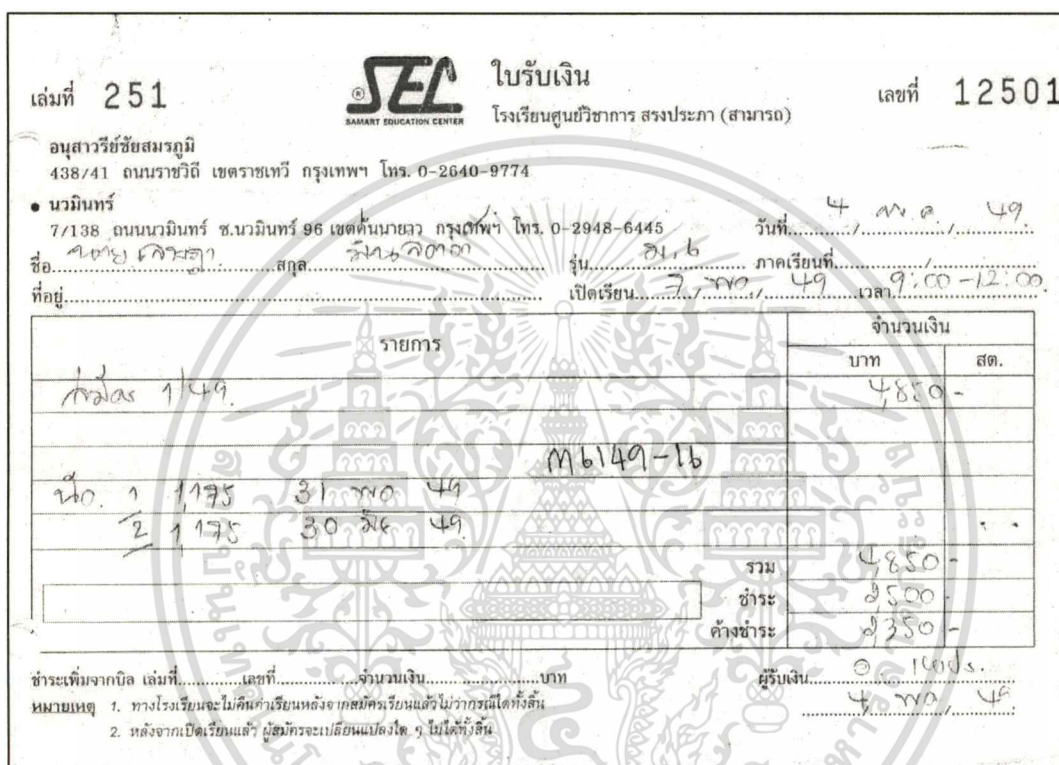 เล่มที่ 251
SEC ®
SAMART EDUCATION CENTER
ใบรับเงิน
โรงเรียนศูนย์วิชาการ สรงประภา (สามารถ)
เลขที่ 12501
อนุสาวรีย์ชัยสมรภูมิ
438/41 ถนนราชวิถี เขตราชเทวี กรุงเทพฯ โทร. 0-2640-9774
• นวมินทร์
7/138 ถนนนวมินทร์ ซ.นวมินทร์ 96 เขตคันนายาว กรุงเทพฯ โทร. 0-2948-6445 วันที่ 4 / พ.ค. / 49
ชื่อ นาย สกุล รุ่น ม.6 ภาคเรียนที่ /
ที่อยู่ เปิดเรียน 7 / พค / 49 เวลา 9:00-12:00
รายการ จำนวนเงิน
บาท สต.
สมัคร 1/49. 4,850 -
M6149-16
นัด. 1 1,175 31 พค 49
2 1,175 30 มิย 49
รวม 4,850 -
ชำระ 2,500 -
ค้างชำระ 2,350 -
ชำระเพิ่มจากบิล เล่มที่ เลขที่ จำนวนเงิน บาท ผู้รับเงิน
หมายเหตุ 1. ทางโรงเรียนจะไม่คืนค่าเรียนหลังจากสมัครเรียนแล้วไม่ว่ากรณีใดทั้งสิ้น 4 / พค / 49
2. หลังจากเปิดเรียนแล้ว ผู้สมัครจะเปลี่ยนแปลงใด ๆ ไม่ได้ทั้งสิ้น